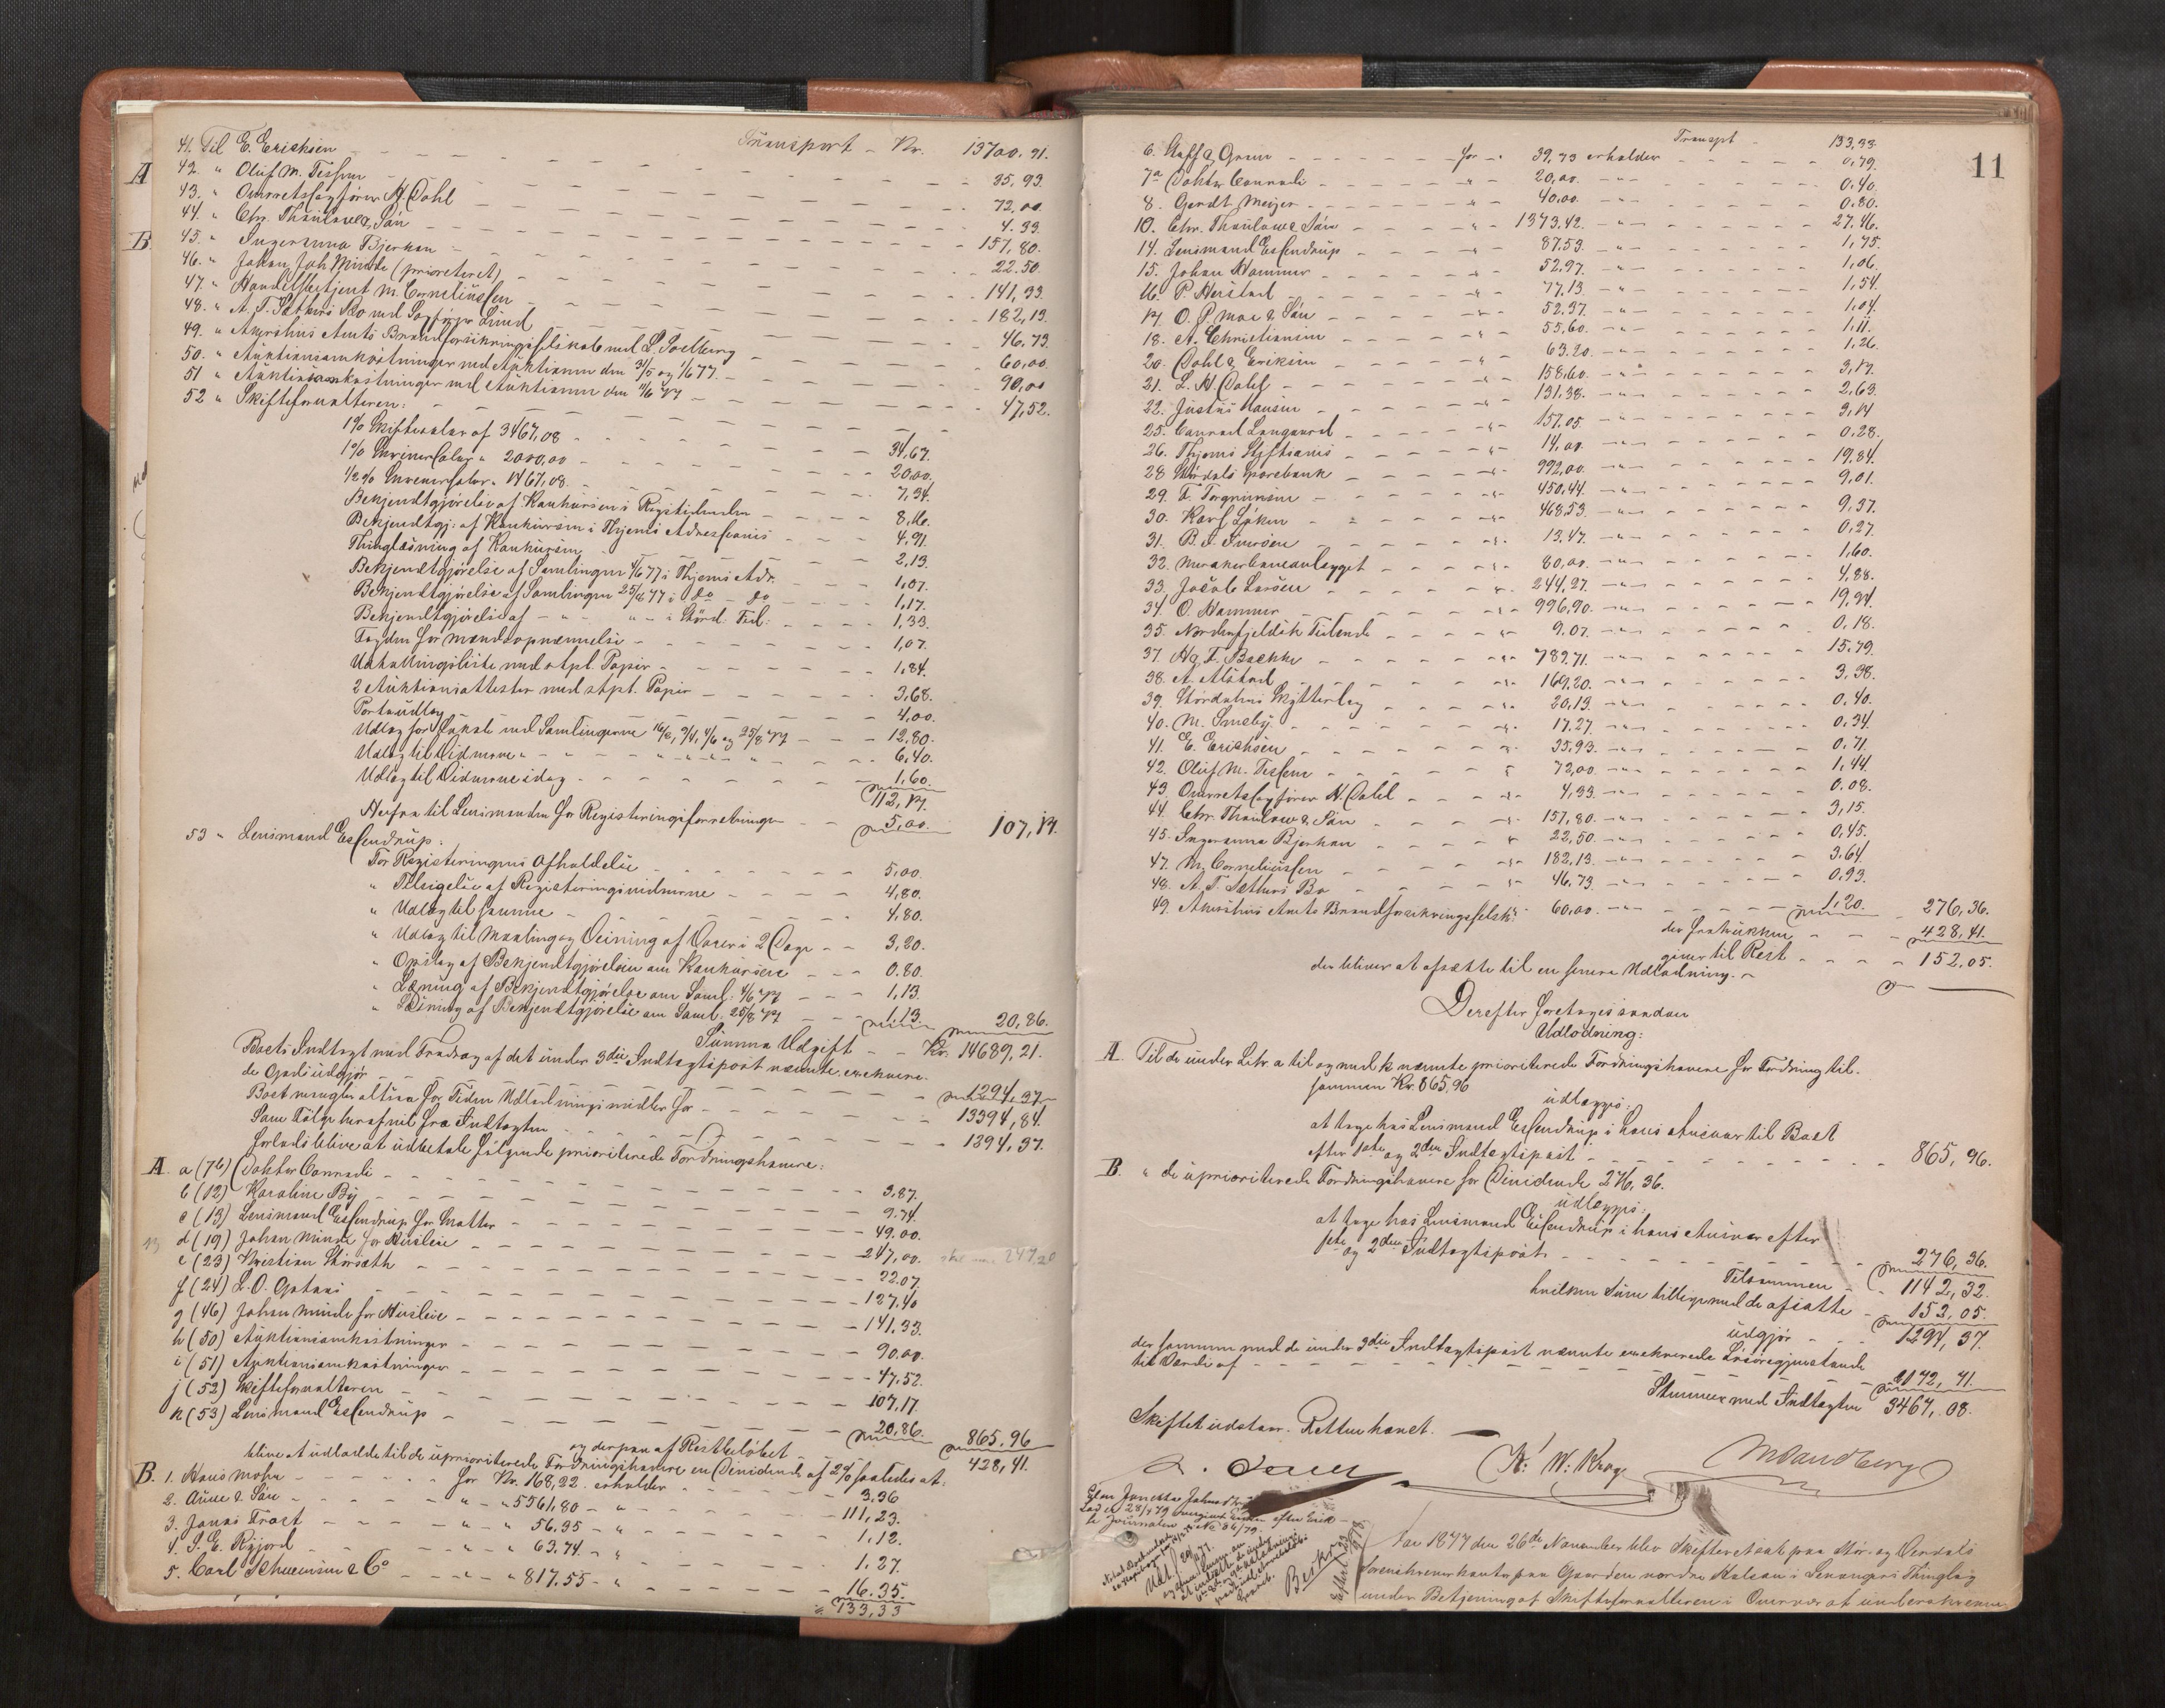 Transport - Kr. 13700.91.
41. Til E. Erichsen - - - 35,93.
A 42. " Oluf M. Tessem - - - 72,00.
43. " Overretssagfører H. Dahl - - - 4.33.
44. " Chr. Thaulow & Søn - - - 157,80.
B 45. " Ingeranna Bjerkan - - - 22.50.
46. " Johan Joh Minde (prioriteret) - - - 141,33.
47. " Handelsbetjent M. Corneliussen - - - 182,13.
48. " A. T. Sæthers Bo ved Sagfører Lund - - - 46,73.
49. " Akershus Amts Brandforsikringsselskab ved L. Soelberg - - - 60,00
50. " Auktionsomkostninger ved Auktionen den 31/5 og 1/6 77. - - - 90,00
51 " Auktionsomkostninger ved Auktionen den 11/6 77 - - - 47,52.
52 " Skifteforvalteren:
1% Skiftesalær af 3467,08 - - - 34,67.
1% Inventsalær " 2000,00 - - - 20,00.
1/2% Inventsalær " 1467,08 - - - 7,34.
Bekjendtgjørelse af Konkursen i Rigstidenden - - - 8,16.
Bekjendtgj: af Konkursen i Thjems Adresseavis - - - 4,91.
Thinglæsning af Konkursen - - - 2,13.
Bekjendtgjørelse af Samlingen 4/6 77 i Thjems Adr. - - - 1,07.
Bekjendtgjørelse af Samlingen 25/8 77 i do - do - - - 1,17.
Bekjendtgjørelse af - " - " - " i Stjørd. Tid: - - - 1,33.
Tagden for Mændsopnævnelse - - - 1,07.
Udtællingsliste med stpl. Papir - - - 1,84.
2 Auktionsattester med stpl. Papir - - - 3,68.
Portoudlæg - - - 4,00.
Udlæg for Lokale ved Samlingerne 16/2, 9/4, 4/6 og 25/8 77 - - - 12,80.
Udlæg til Vidnerne " - " - " - - - 6,40.
Udlæg til Vidnerne idag - - - 1,60.
112,17.
Herfra til Lensmanden for Registeringsforretninger - - 5,00. 107,17.
53 " Lensmand Essendrup:
For Registeringens Afholdelse - - - 5,00.
" Tilsigelse af Registeringsvidnerne - - - 4,80.
" Udlæg til samme - - - 4,80.
" Udlæg til Maaling og Veining af Varer i 2 Dage - - 3,20.
" Opslag af Bekjendtgjørelsen om Konkursen - - - 0.80.
" Læsning af Bekjendtgjørelse om Saml: 4/6 77 - - - 1,13.
" Læsning af Bekjendtgjørelse om Saml. 25/8 77 - - 1,13. 20,86.
Summa Udgift - - Kr. 14689,21.
Boets Indtægt med Fradrag af det under 3die Indtægtspost nævnte exekvere-
de Gods udgjør - - - 1294,37.
Boet mangler altsaa for Tiden Udlodningsmidler for - - - 13394,84.
Som Følge heraf vil fra Indtægten - - - 1294,37.
forlods blive at udbetale følgende prioriterede Fordringshavere:
A. a (7b) Doktor Conradi - - - 3,87.
b (12) Karoline By - - - 9.74.
c (13) Lensmand Essendrup for Skatter - - - 49.00.
d (19) Johan Minde for Husleie - - - 247,00.
e (23) Kristian Storsæth - - - 22.07.
f (24) L. O. Optans - - - 127,40
g (46) Johan Minde for Husleie - - - 141,33.
h (50) Auktionsomkostninger - - - 90,00.
i (51) Auktionsomkostninger - - - 47,52.
j (52) Skifteforvalteren - - - 107,17
k (53) Lensmand Essendrup - - - 20,86. 865,96
og derpaa af Restbeløbet - 428,41.
blive at udlodde til de uprioriterede Fordringshavere en Dividende af 2% saaledes at:
B. 1. Hans Mohn - - - for Kr. 168,22 erholder - - - 3,36
2. Aune & Søn - - - " - " 5561,80 - " - - - 111,23.
3. Jonas Frost - - - " - " 56,35 - " - - - 1,12.
4. P. E. Ryjord - - - " - " 63.74 - " - - - 1.27.
5. Carl Schwensen & Co - - " - " 817.55 - " - - - 16.35.
133,33
11
Transpt - 133,33
6. Huff & Gram - - - for - " 39,73 erholder - - - 0,79.
7a Doktor Conradi - - - " - 20,00. - " - - - 0,40.
8. Gerdt Meyer - - - " - 40,00. - " - - - 0.80.
10. Chr. Thaulow & Søn - - - " - 1373.42. - " - - - 27,46.
14. Lensmand Essendrup - - - " - 87.53. - " - - - 1,75.
15. Johan Hammer - - - " - 52.97. - " - - - 1,06.
16. P. Herstad - - - " - 77,13. - " - - - 1,54.
17. O. P. Moe & Søn - - - " - 52.37. - " - - - 1,04.
18. A. Christiansen - - - " - 55.60. - " - - - 1,11.
20. Dahl & Eriksen - - - " - 63.20. - " - - - 1,26.
21. L. H. Dahl - - - " - 158,60. - " - - - 3,17.
22. Justus Hansen - - - " - 131.38. - " - - - 2,63.
25. Conrad Langaard - - - " - 157.05. - " - - - 3,14
26. Thjems Stiftsavis - - - " - 14,00. - " - - - 0.28.
28 Stjørdals Sparebank - - - " - 992,00. - " - - - 19,84.
29. F. Torgrimsen - - - " - 450.44. - " - - - 9,01.
30. Karl Løken - - - " - 468.53. - " - - - 9,37.
31. B. S. Iversen - - - " - 13.47. - " - - - 0,27.
32. Merakerbaneanlægget - - - " - 80,00. - " - - - 1,60.
33. Jacob Larsen - - - " - 244,27. - " - - - 4,88.
34. O. Hammer - - - " - 996,90. - " - - - 19,94.
35. Nordenfjeldsk Tidende - - - " - 9.07. - " - - - 0.18.
37. Hg. F. Bachke - - - " - 789.71. - " - - - 15.79.
38. A. Alstad - - - " - 169,20. - " - - - 3,38.
39. Stjørdalens Skytterlag - - - " - 20,13. - " - - - 0,40.
40. M. Smeby - - - " - 17.27. - " - - - 0.34.
41. E. Erichsen - - - " - 35,93. - " - - - 0,71.
42. Oluf M. Tessem - - - " - 72,00. - " - - - 1,44.
43. Overretssagfører H. Dahl - - - " - 4,33. - " - - - 0.08.
44. Chr. Thaulow & Søn - - - " - 157,80. - " - - - 3,15.
45. Ingeranna Bjerkan - - - " - 22,50. - " - - - 0,45.
47. M. Corneliussen - - - " - 182,13. - " - - - 3,64.
48. A. T. Sæthers Bo - - - " - 46,73. - " - - - 0,93.
49. Akershus Amts Brandforsikringsselsk: 60,00. - " - - - 1,20. 276,36.
der fratrukken - - - 428,41.
giver til Rest - - - 152,05.
der bliver at afsætte til en senere Udlodning. -
Derefter foretages saadan
Udlodning:
A. Til de under Litr. a til og med k nævnte prioriterede Fordringshavere for Fordring til-
sammen Kr. 865,96
udlægges:
at tage hos Lensmand Essendrup i hans Ansvar til Boet
efter 1ste og 2den Indtægtspost - - - 865,96.
B " de uprioriterede Fordringshavere for Dividende 276,36.
udlægges:
at tage hos Lensmand Essendrup i hans Ansvar efter
1ste og 2den Indtægtspost - - - 276,36.
Tilsammen - - 1142,32.
hvilken Sum tillige med de afsatte - - 152,05.
udgjør - - - 1294,37.
der sammen med de under 3die Indtægtspost nævnte exekverede Løsøregjenstande
til Værdi af - - - 2172,71.
Stemmer med Indtægten 3467,08.
Skiftet udstaar. Retten hævet.
K: W: Krog
M Sandberg
Aar 1877 den 26de November blev Skifteret sat paa Stør- og Værdals
Sorenskriverkontor paa Gaarden nordre Kalsaa i Levangers Thinglag
under Betjening af Skifteforvalteren i Overvær af underskrevne